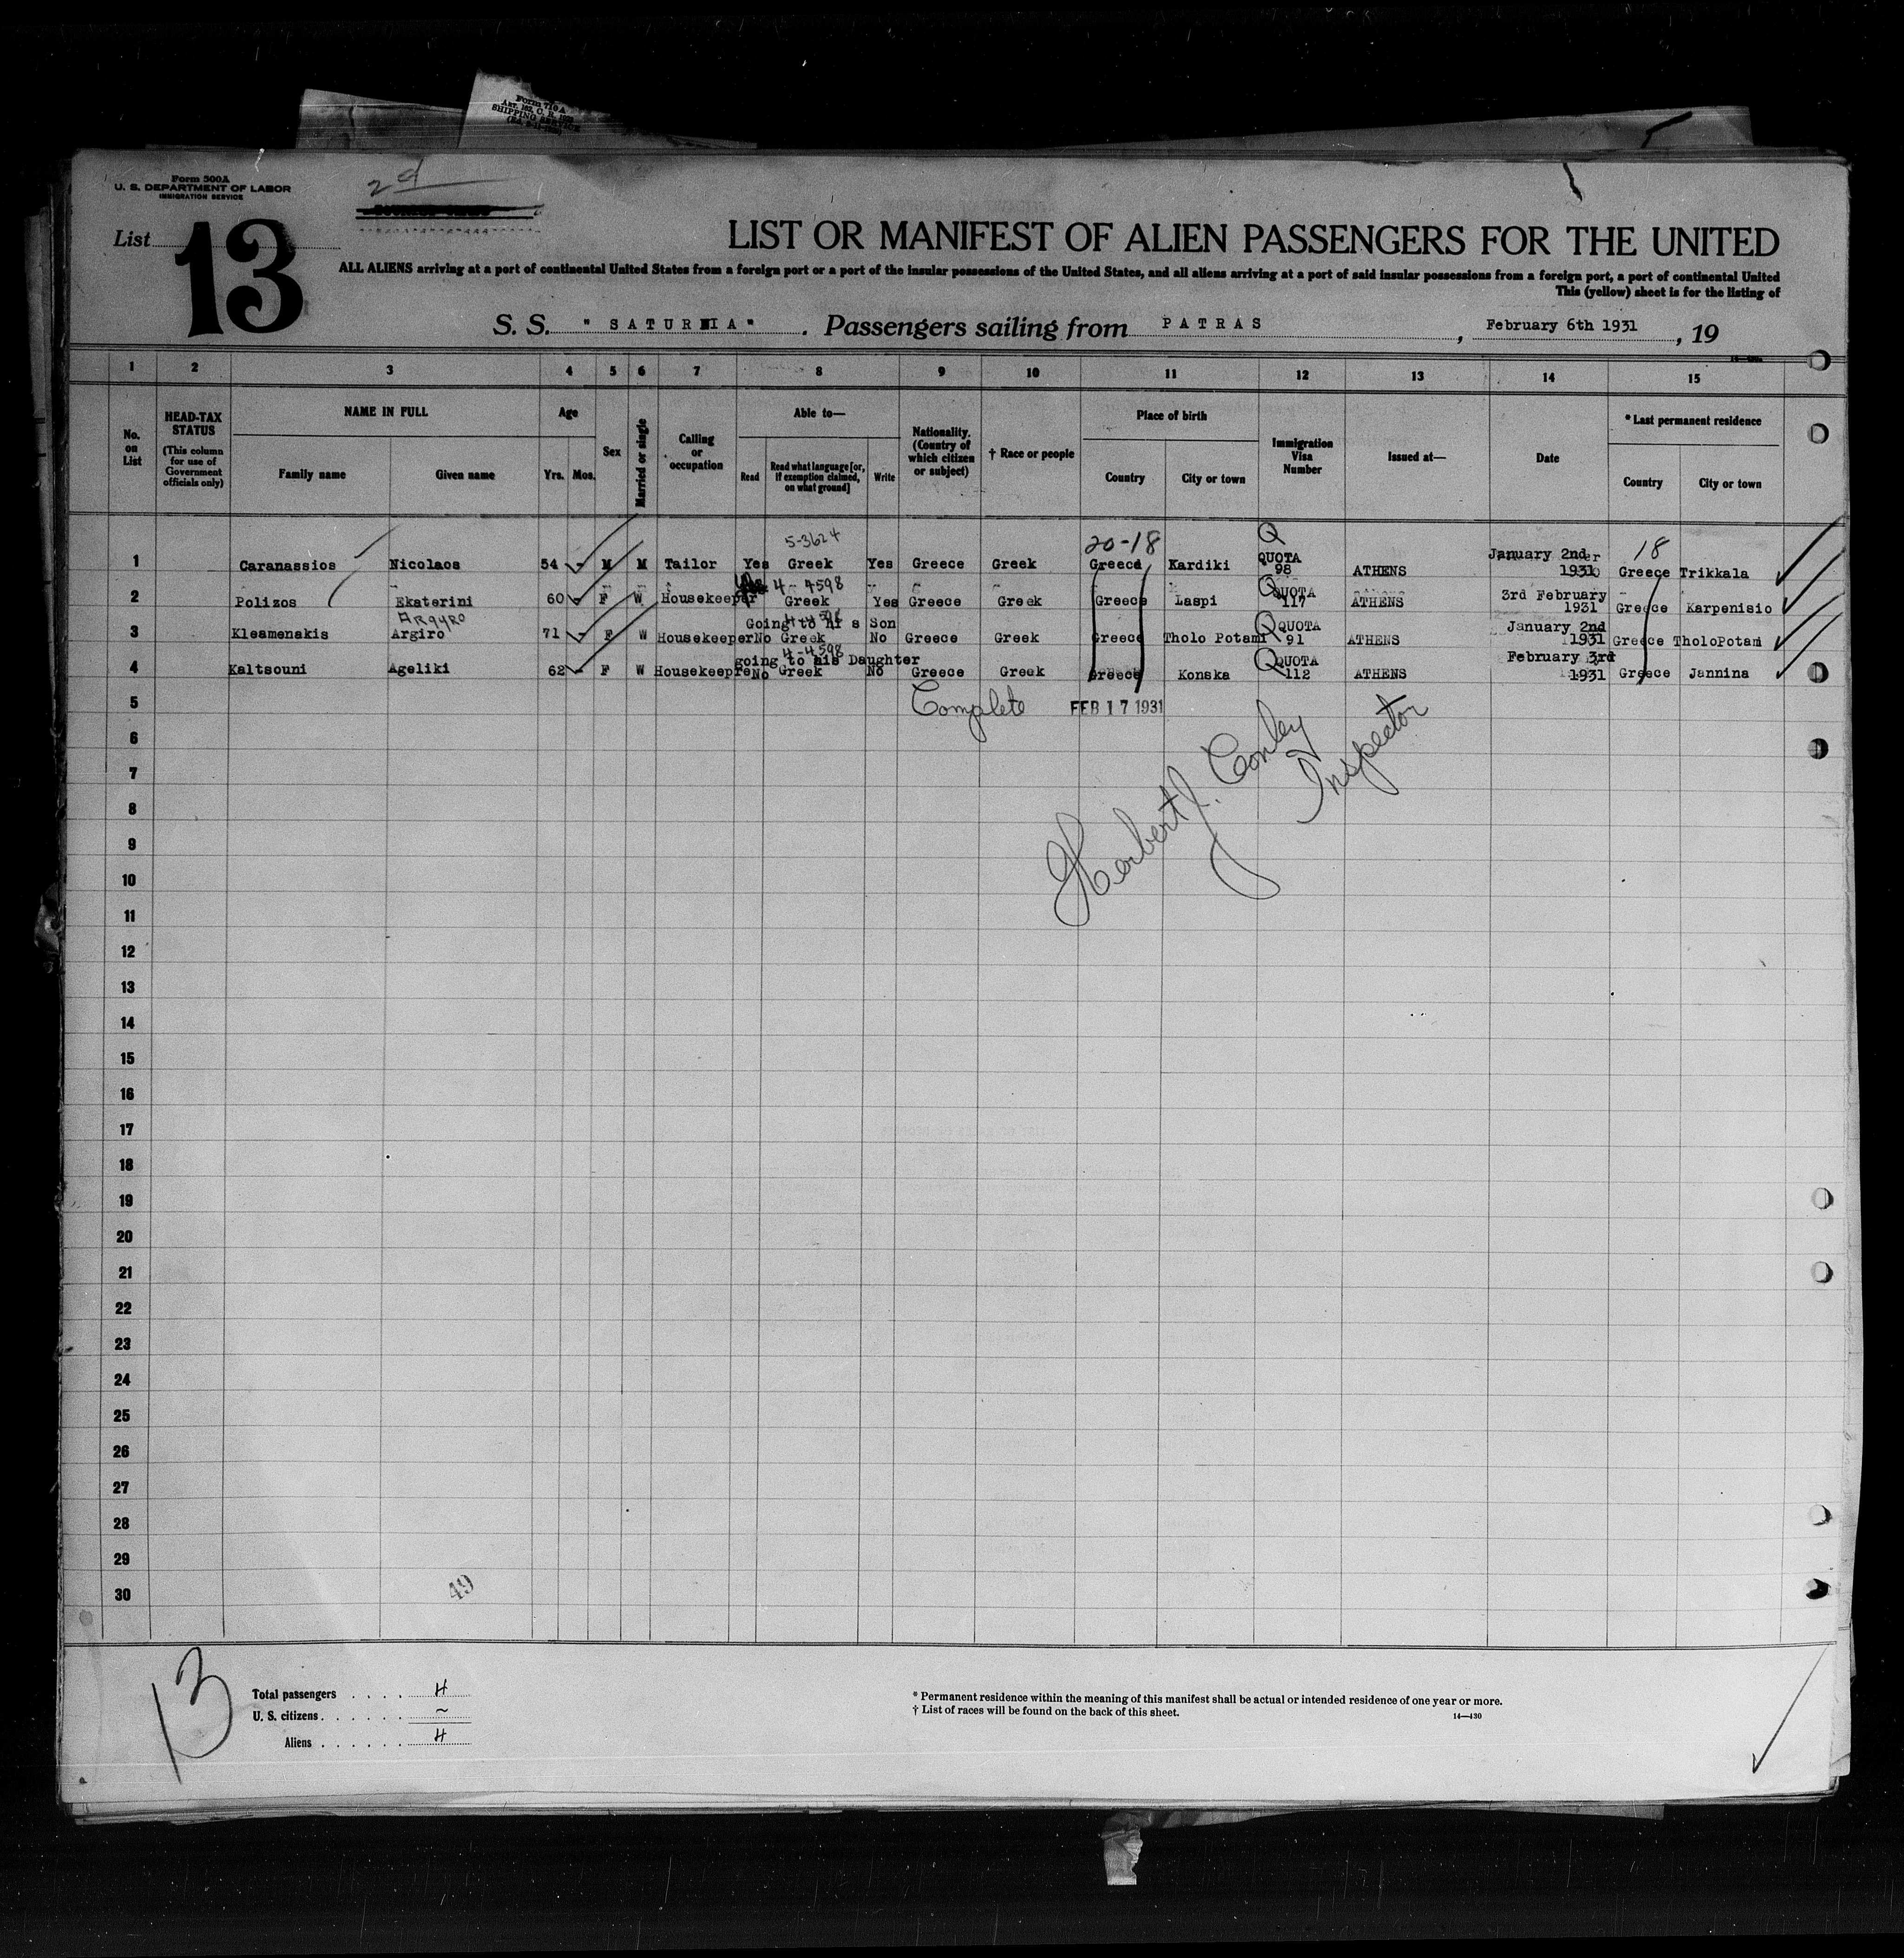 Form 710 A
SHIPPING SERVICE
Form 500A
U. S. DEPARTMENT OF LABOR
IMMIGRATION SERVICE
2d
List 13
LIST OR MANIFEST OF ALIEN PASSENGERS FOR THE UNITED
ALL ALIENS arriving at a port of continental United States from a foreign port or a port of the insular possessions of the United States, and all aliens arriving at a port of said insular possessions from a foreign port, a port of continental United
This (yellow) sheet is for the listing of
S. S. "SATURNIA". Passengers sailing from PATRAS, February 6th 1931, 19
1 2 3 4 5 6 7 8 9 10 11 12 13 14 15
No. on List
HEAD-TAX STATUS (This column for use of Government officials only)
NAME IN FULL
Family name Given name
Age
Yrs. Mos.
Sex
Married or single
Calling or occupation
Able to—
Read Read what language [or, if exemption claimed, on what ground] Write
Nationality. (Country of which citizen or subject)
† Race or people
Place of birth
Country City or town
Immigration Visa Number
Issued at—
Date
* Last permanent residence
Country City or town
5-3624 20-18 Q 18
1 Caranassios Nicolaos 54 - M M Tailor Yes Greek Yes Greece Greek Greece Kardiki QUOTA 98 ATHENS January 2nd 1931 Greece Trikkala
4-4598
2 Polizos Ekaterini 60 - F W Housekeeper Greek Yes Greece Greek Greece Laspi Q QUOTA 117 ATHENS 3rd February 1931 Greece Karpenisio
ARGYRO Going to his Son
3 Kleamenakis Argiro 71 - F W Housekeeper No Greek No Greece Greek Greece Tholo Potami Q QUOTA 91 ATHENS January 2nd 1931 Greece TholoPotami
4-4598
going to his Daughter
4 Kaltsouni Ageliki 62 - F W Housekeeper No Greek No Greece Greek Greece Konska Q QUOTA 112 ATHENS February 3rd 1931 Greece Jannina
5 Complete FEB 17 1931
6
7
8
9
10
11
12
13
14
15
16
17
18
19
20
21
22
23
24
25
26
27
28
29
30
Herbert J. Conley
Inspector
49
13
Total passengers . . . . 4
U. S. citizens . . . . . . ~
Aliens . . . . . . 4
* Permanent residence within the meaning of this manifest shall be actual or intended residence of one year or more.
† List of races will be found on the back of this sheet.
14—430